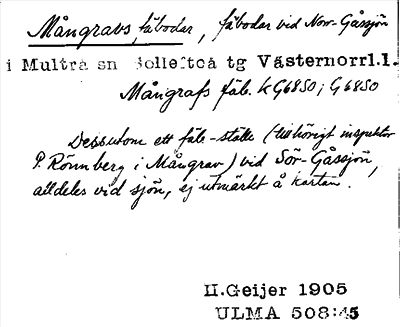 Mångravs fäbodar, fäbodar vid Norr-Gåssjön
i Multrå sn Sollefteå tg Västernorrl.l.
Mångrafs fäb. k G6850; G 6850
Dessutom ett fäb-ställe (tillhörigt inspektor
P. Rönnberg i Mångrav) vid Sör-Gåssjön,
alldeles vid sjön, ej utmärkt å kartan.
H.Geijer 1905
ULMA 508:45